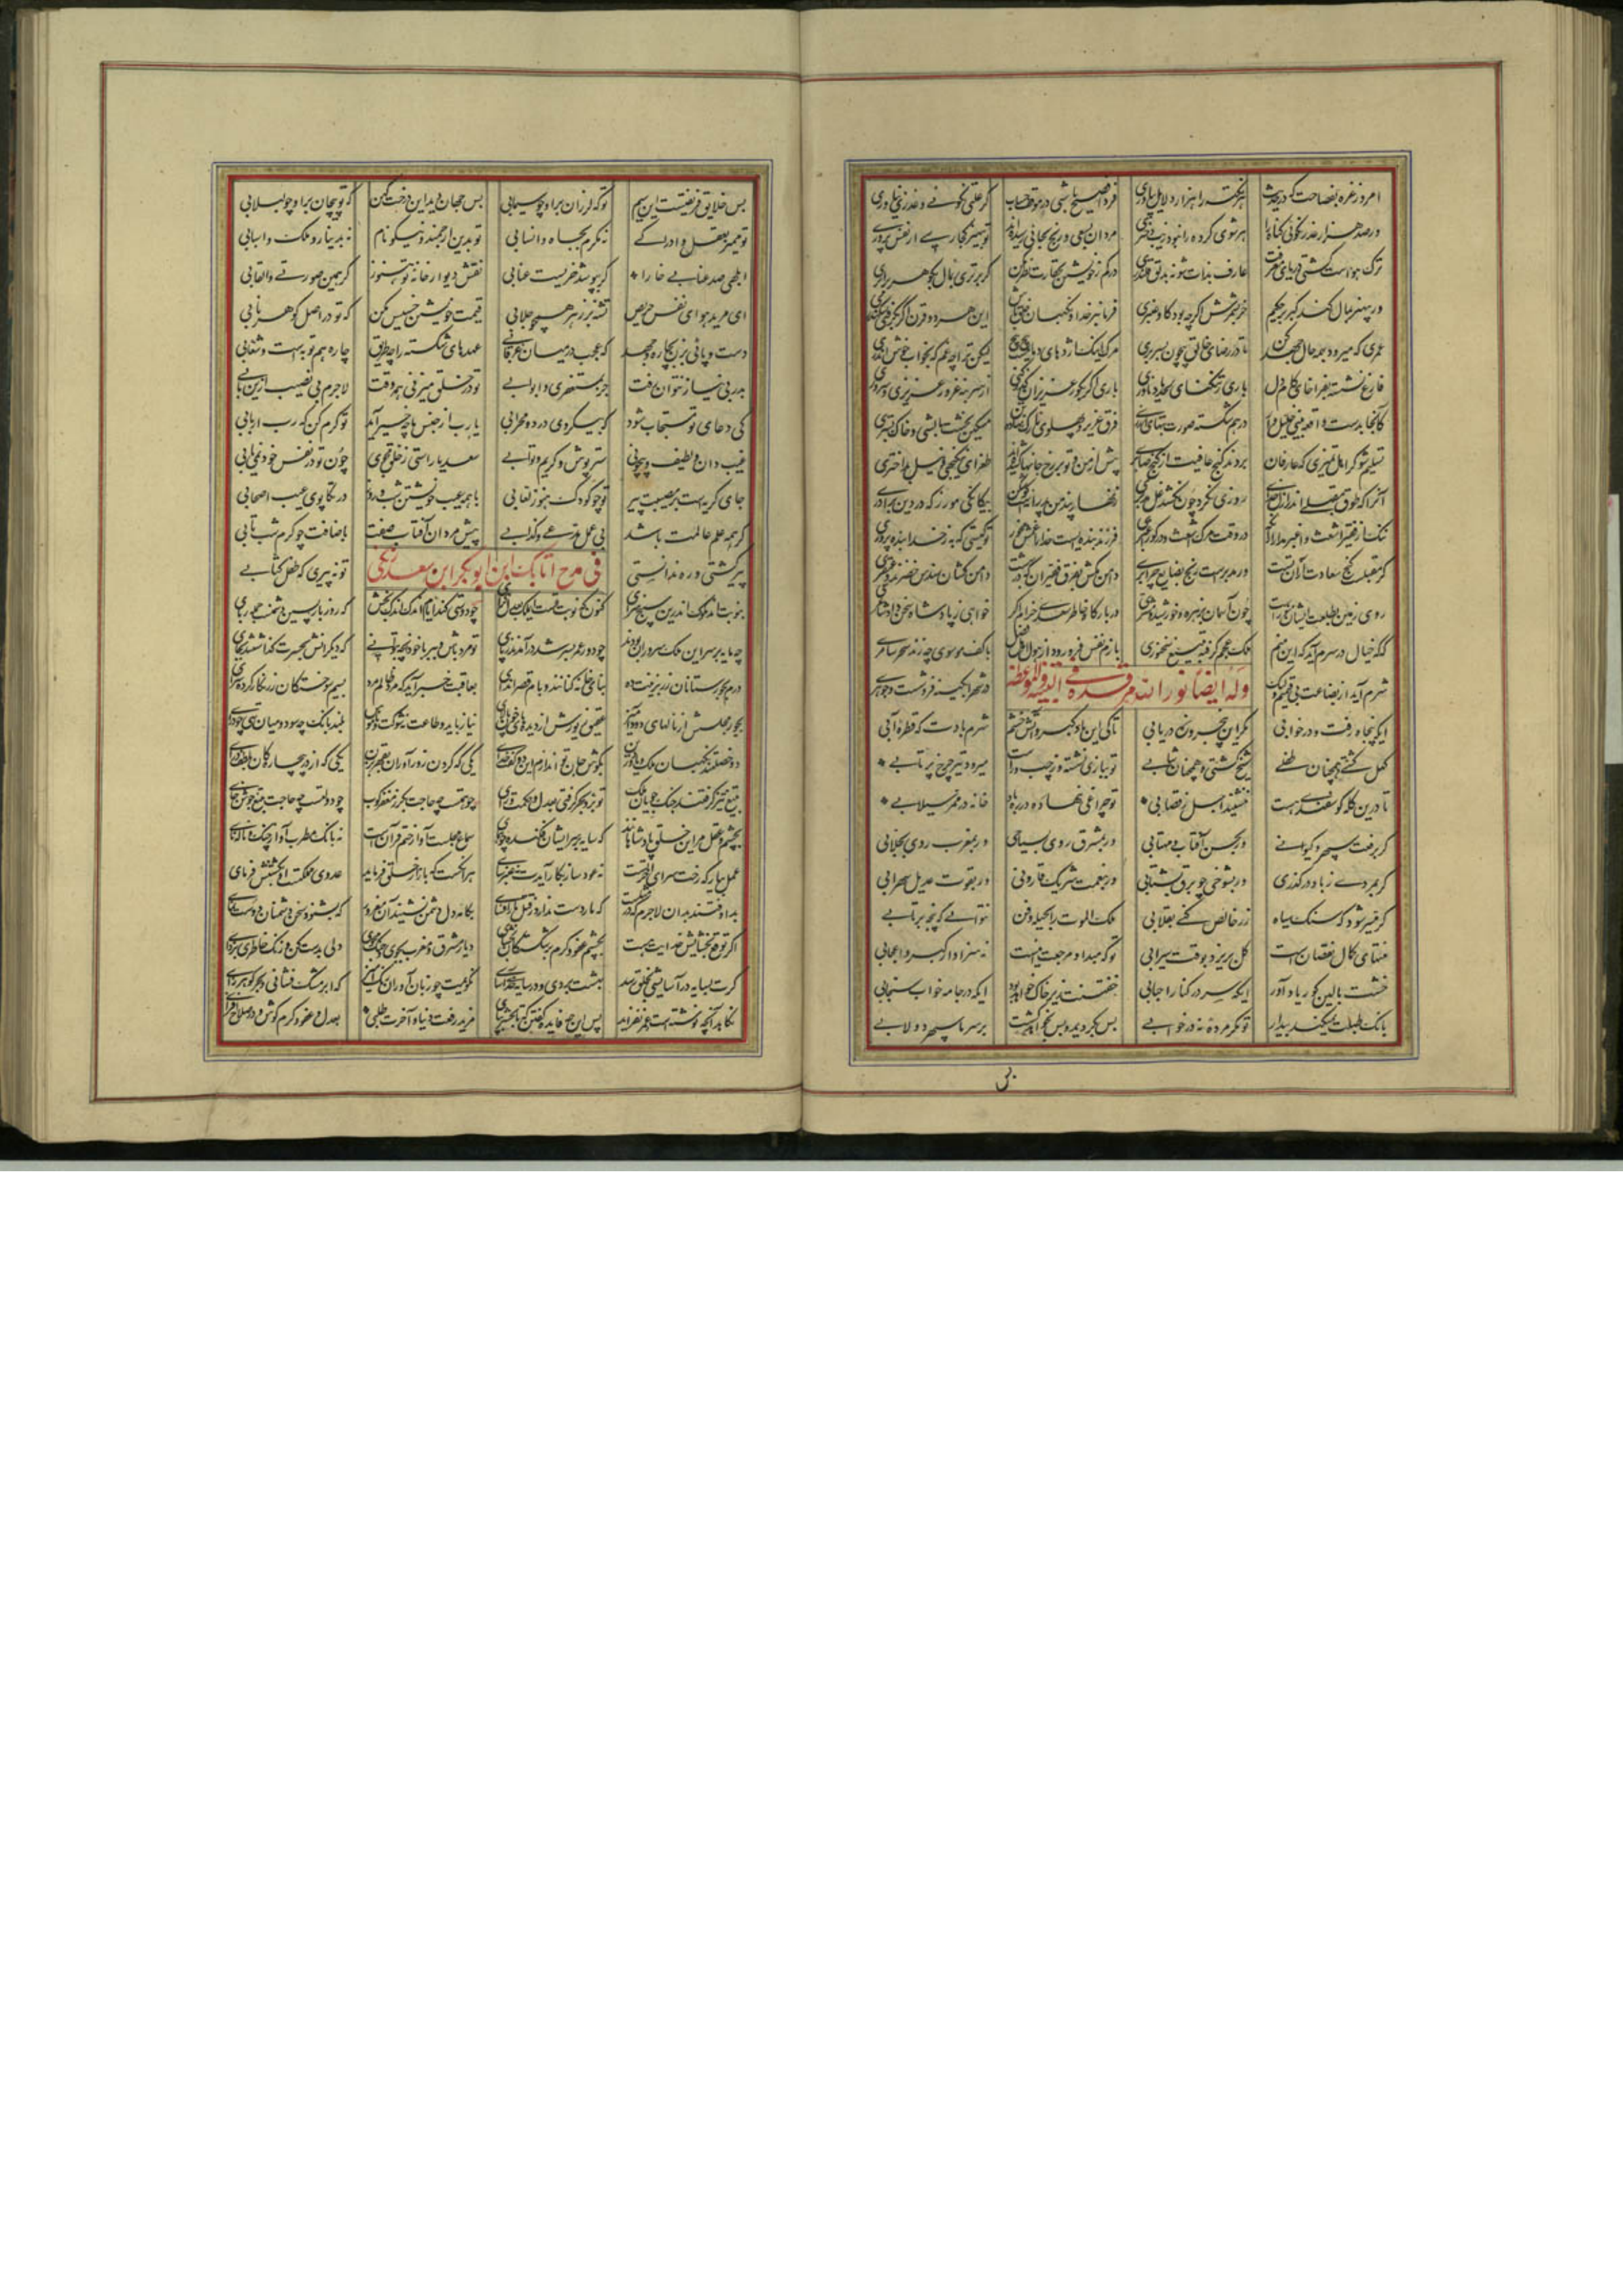 امروز غره بفصاحت که در حدیث هر نکته را هزار دلایل بیاوری فردا فصیح باشی در موقف حساب گر علتی بگوئی و عذری بیاوری
ورصد هزار عذر بگوئی گناه را مر شوی کرده را نبود زیب دختری مردان بسعی و رنج بجائی رسیده‌اند تو بیهنر کجا رسی از نفس پروری
ترک هواست کشتی دریای معرفت عارف بذات شو نه بدلق قلندری در کم ز خویشتن بحقارت نظر مکن گر بهتری بمال بگوهر برابری
ور بیهنر بمال کند کبر بر حکیم خر شمرش اگرچه بود گاو عنبری فرمانبر خدا و نگهبان خلق باش این هر دو قرن اگر بگرفتی سکندری
عمری که میرود بهمه حال جهد کن تا در رضای خالق بیچون بسر بری مرگ اینک اژدهای دمان لیکن ترا چه غم که بخواب خوش اندری
فارغ نشسته بفراخای کام دل باری ز تنگنای لحد یاد ناوری باری گرت بگور عزیزان گذر کنی از سر بنه غرور عزیزی و سروری
کانجا بدست واقعه بینی خلیل وار درهم شکسته صورت بتهای آذری فرق عزیز و پهلوی نازک نهاده تن مسکین بخشت بالشی و خاک بستری
تسلیم شو گر اهل تمیزی که عارفان بردند گنج عافیت از کنج صابری پیش از من و تو بر رخ جانها کشیده‌اند طغرای نیکبختی و نیل بداختری
آنرا که طوق مقبلی اندر ازل خدای روزی نکرد چون نکشد غل مدبری زنهار پند من پدرانه است گوش کن بیگانگی مورز که در دین برادری
ننگ از فقیر اشعث و اغبر مدار از آنک در وقت مرگ اشعث و در گور اغبری فرزند بنده‌ایست خدا را غمش مخور تو کیستی که به ز خدا بنده پروری
گر مقبلست گنج سعادت از آن اوست ور مدبرست رنج بضاعت چرا بری دامن کشان سندس خضرند و عبقری
روی زمین بطلعت ایشان منورست چون آسمان بزهره و خورشید و مشتری در بارگاه خاطر سعدی خرام اگر خواهی ز پادشاه سخن داد شاعری
گه گه خیال در سرم آید که این منم ملک عجم گرفته بتیغ سخنوری بازم نفس فرو رود از هول اهل فضل با کف موسوی چه زند سحر سامری
شرم آید از بضاعت بی قیمتم ولیک در شهر آبگینه فروشست و جوهری
وله ایضا نور الله مرقده فی التنبیه و الموعظه
ایکه پنجاه رفت و در خوابی مگر این پنجروزه دریابی تاکی این باد کبر و آتش خشم شرم بادت که قطره آبی
کهل گشتی و همچنان طفلی شیخ گشتی و همچنان شابی تو ببازی نشسته و ز چپ و راست میرود تیر چرخ پرتابی
تا درین گله گوسفندی هست ننشیند اجل ز قصابی تو چراغی نهاده در ره باد خانه در ممر سیلابی
گر برفعت سپهر و کیوانی ور بحسن آفتاب و مهتابی ور بمشرق روی بسیاحی ور بمغرب رسی بجلابی
گر بمردی ز باد درگذری ور بشوخی چو برق بشتابی ور بنعمت شریک قارونی ور بقوت عدیل سهرابی
گر میسر شود که سنگ سیاه زر خالص کنی بقلابی ملک الموت را بحیله و فن نتوانی که پنجه برتابی
منتهای کمال نقصانست گل بریزد بوقت سیرابی تو که مبدا و مرجعت اینست نه سزاوار کبر و اعجابی
خشت بالین گور یاد آور ایکه سر در کنار احبابی خفتنت زیر خاک خواهد بود ایکه در جامه خواب سنجابی
بانگ طبلت نمیکند بیدار تو مگر مرده نه در خوابی بس بگردید و بس بخواهد گشت بر سر ما سپهر دولابی
بس خلایق فریفتست این سیم تو که لرزان برو چو سیمابی بس جهان دید این درخت کهن که تو پیچان برو چو لبلابی
تو ممیز بعقل و ادراکی نه مکرم بجاه و انسابی تو بدین ارجمند و نیکونام نه بدینار و ملک و اسبابی
ابلهی صد عنابی خارا گر بپوشد خریست عتابی نقش دیوار خانه تو هنوز گر همین صورتی و القابی
ای مرید هوای نفس حریص تشنه بر زهر همچو جلابی قیمت خویشتن خسیس مکن که تو در اصل گوهر نابی
دست و پائی بزن بچاره و جهد که عجب در میان غرقابی عهدهای شکسته را چه طریق چاره هم توبه است و شعابی
بدر بی نیاز نتوان رفت جز بمستغفری و اوابی تو در خلق میزنی همه وقت لاجرم بی نصیب ازین بابی
کی دعای تو مستجاب شود که بیک روی در دو محرابی یا رب از جنس ما چه خیر آید تو کرم کن که رب اربابی
غیب دان و لطیف و بیچونی سترپوش و کریم و توابی سعدیا راستی ز خلق مجوی چون تو در نفس خود نمی یابی
جای گریه است بر مصیبت پیر تو چو کودک هنوز لعابی با همه عیب خویشتن شب و روز در تکاپوی عیب اصحابی
گر همه علم عالمت باشد بی عمل مدعی و کذابی پیش مردان آفتاب صفت باضافت چو کرم شب تابی
پیر گشتی و ره ندانستی تو نه پیری که طفل کتابی
فی مدح اتابک ابن ابوبکر ابن سعد زنگی
بنوبتند ملوک اندرین سپنج سرای کنون که نوبت تست ای ملک بعدل گرای چه دوستی کند ایام اندک اندک بخش که روز بازپسین دشمنیست جمله ربای
چه مایه بر سر این ملک سروران بودند چو دور عمر بسر شد درآمدند ز پای تو مرد باش و ببر با خود آنچه بتوانی که دیگرانش بحسرت گذاشتند بجای
درم بجورستانان زر بزینت ده بنای خانه کنانند و بام قصر اندای بعاقبت خبر آمد که مرد ظالم مرد بسیم سوختگان زرنگار کرده سرای
بخور مجلسش از نالهای دودآمیز عقیق زیورش از دیدهای خون پالای نیاز باید و طاعت نه شوکت و ناموس بلند بانگ چه سود و میان تهی چو درای
دو خصلتند نگهبان ملک و یاور دین بگوش جان تو اندازم این دو گفت خدای یکی که گردن زورآوران بقهر بزن یکی که از در بیچارگان بلطف درآی
بتیغ و نیزه گرفتند جنگ جویان ملک تو بر و بحر گرفتی بعدل و همت و رای چو همتست چه حاجت بگرز مغفرکوب چو دولتست چه حاجت بتیغ جوشن خای
بچشم عقل من این خلق پادشاهانند که سایه بر سر ایشان فکنده چو همای سماع مجلست آواز ختم قرآنست نه بانگ مطرب و آواز چنگ و ناله نای
عمل بیار که رخت سرای آخرتست نه عود ساز بکار آیدت نه عنبرسای هر آنکست که بآزار خلق فرماید عدوی مملکتست او بکشتنش فرمای
بداوفتند بدان لاجرم که در که مار دست ندارد ز قتل مار افسای بکامه دل دشمن نشیند آن مغرور که بشنود سخن دشمنان دوست نمای
اگر توقع بخشایش خدایت هست بچشم عفو و کرم بر شکستگان بخشای دیار مشرق و مغرب مگیر و جنگ مجوی دلی بدست کن و زنگ خاطری بزدای
گرت بسایه در آسایشی بخلق رسد بهشت بردی و در سایه خدا آسای نگویمت چو زبان آوران رنگ آمیز که ابر مشک فشانی و بحر گوهرزای
نکاهد آنچه نوشتست و عمر نفزاید پس این چه فایده گفتن که تا بحشر بپای مزید رفعت دنیا و آخرت طلبی بعدل و عفو و کرم کوش و در صلاح افزای